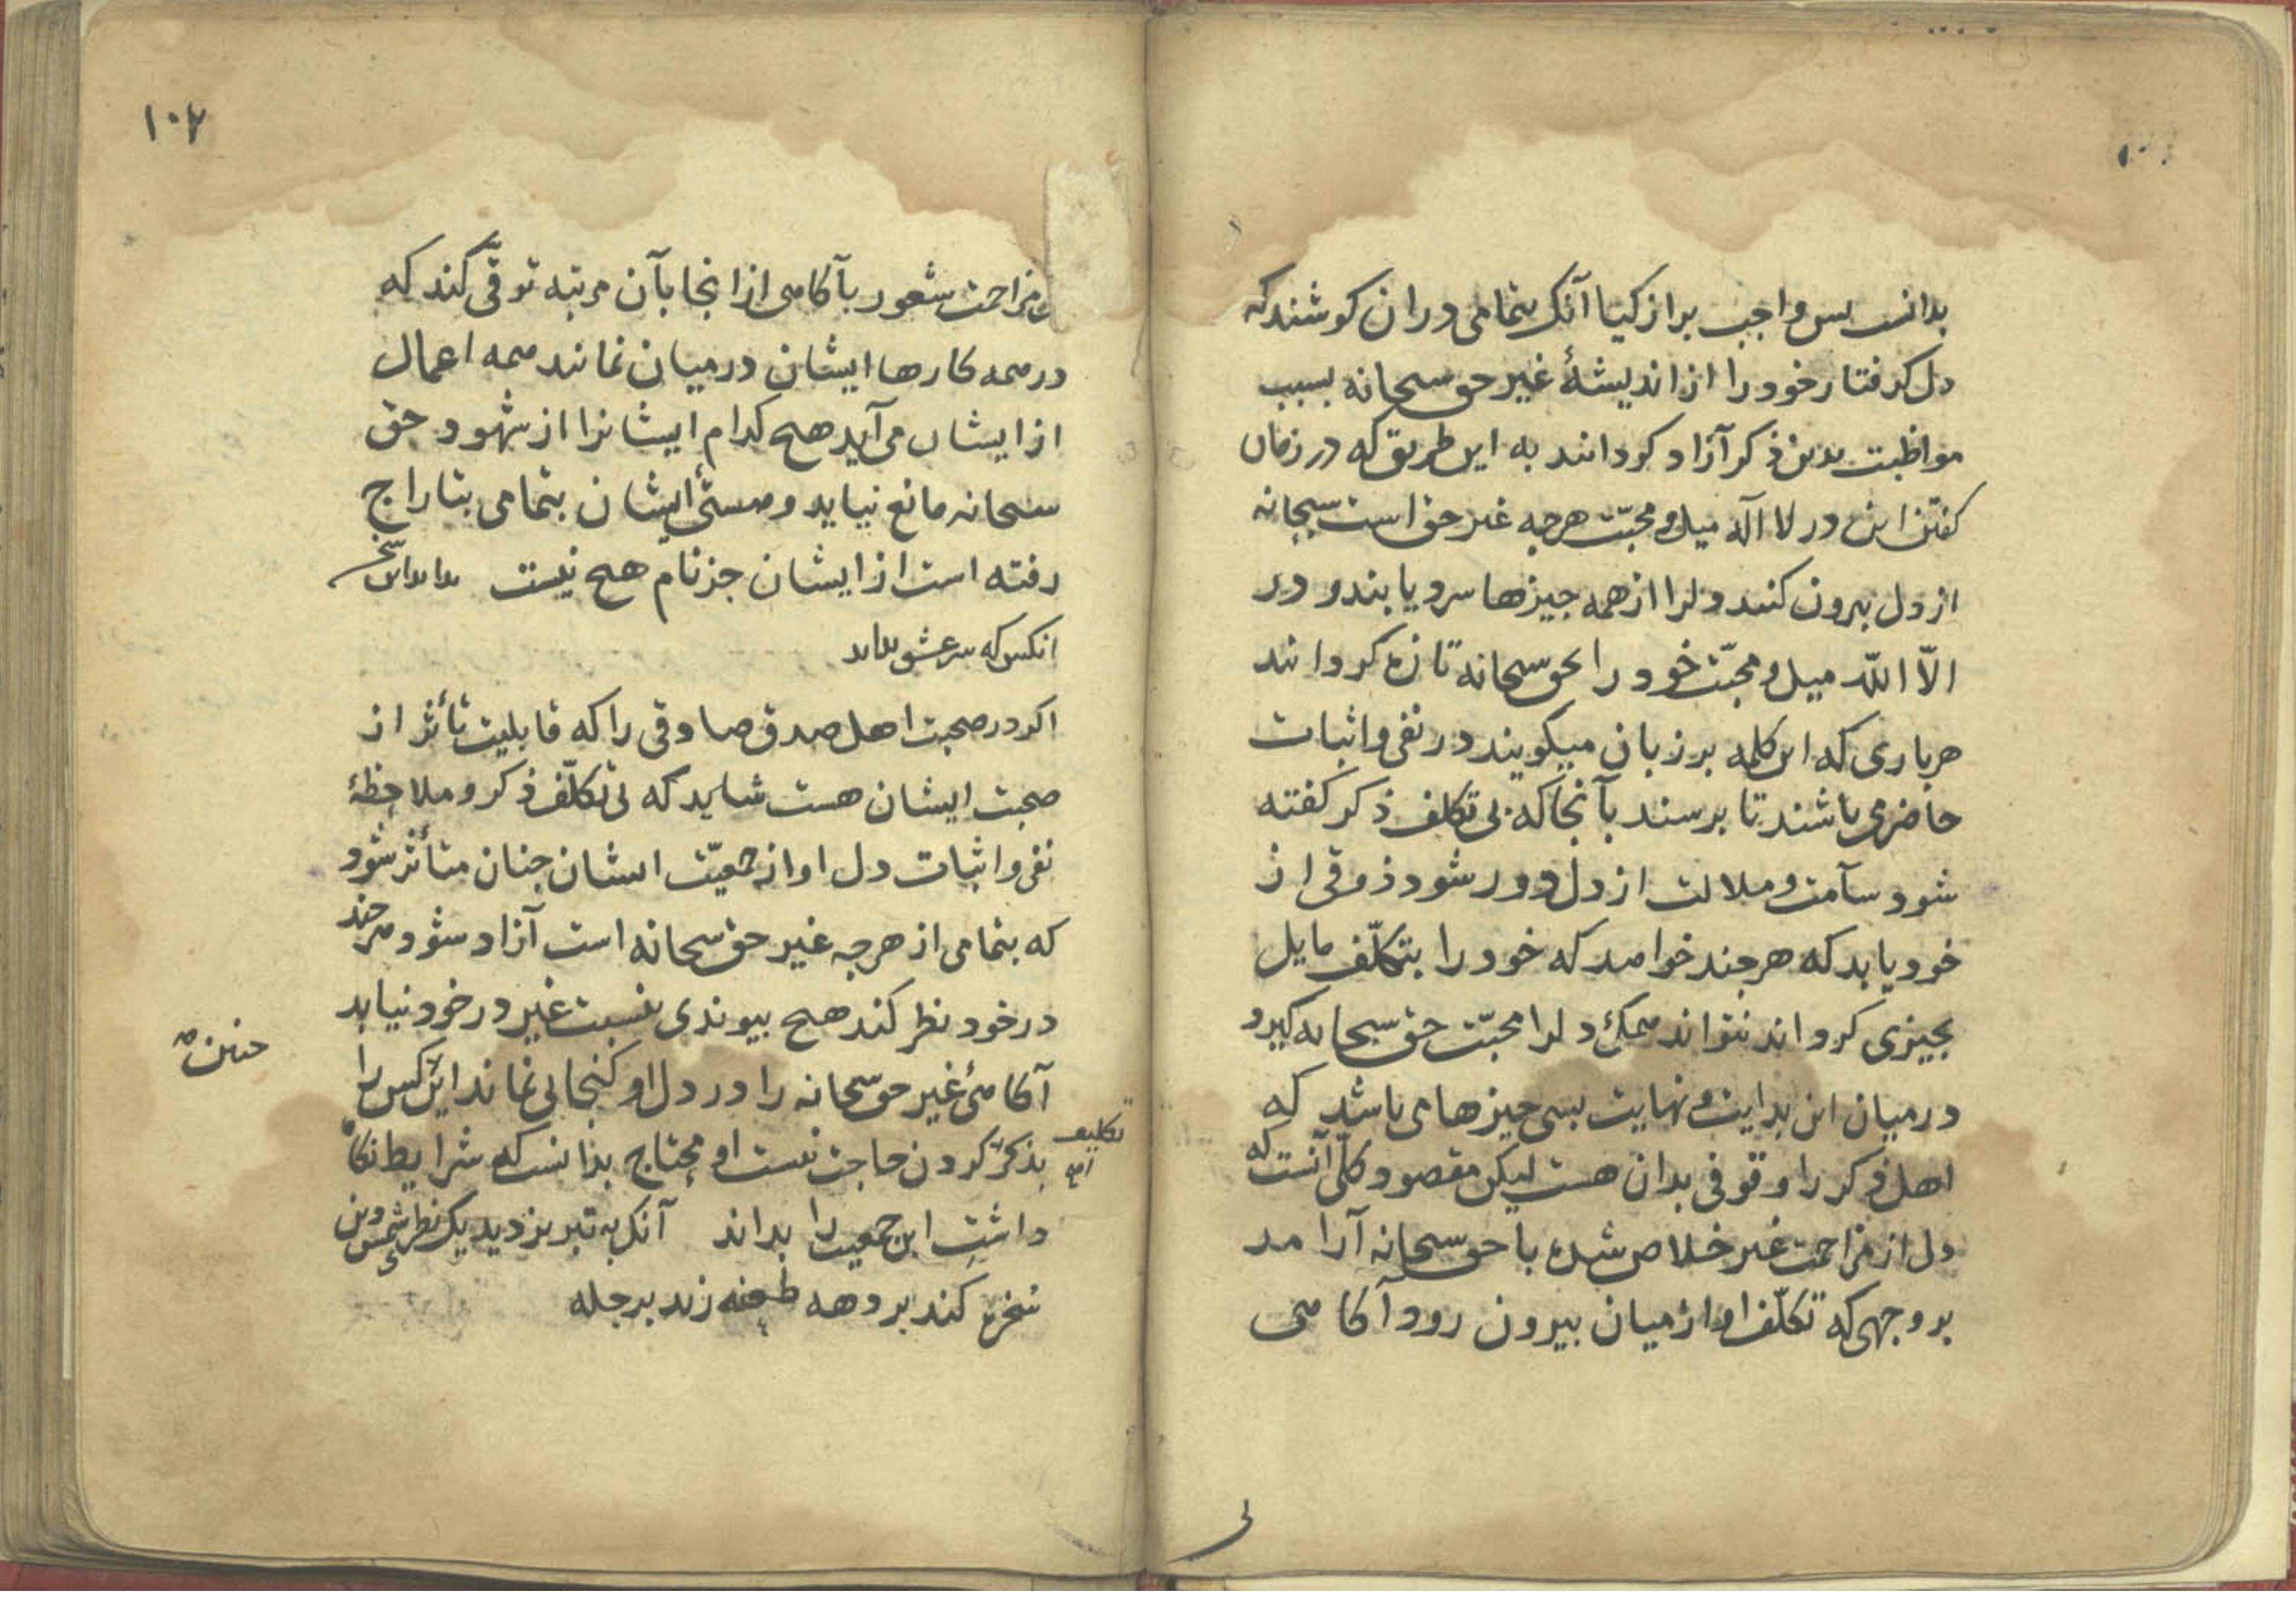 بدانست بس واجب بر ازکیا آنک بتمامی دران کوشند که
دل کرفتار خود را از اندیشهٔ غیر حق سبحانه بسبب
مواظبت بدین ذکر آزاد کردانند به این طریق که در زمان
کفتن این در لا اله میل و محبّت هرجه غیر حق است سبحانه
از دل بیرون کنند و لرا از همه جیزها سرد یابند و در
الّا اللّه میل و محبّت خود را بحق سبحانه تازه کردانند
هرباری که این کلمه بر زبان میکویند در نفی و اثبات
حاضر می باشند تا برسند بآنجا که بی تکلف ذکر کفته
شود سآمت و ملالت از دل دور شود ذوقی از
خود یابد که هرجند خواهد که خود را بتکلّف مایل
بجیزی کرداند نتواند همکئ دلرا محبّت حق سبحانه کیرد
درمیان این بدایت و نهایت بسی جیزها می باشد که
اهل ذکر را وقوفی بدان هست لیکن مقصود کلّی آنست که
دل از مزاحمت غیر خلاص شده با حق سبحانه آرامد
بر وجهی که تکلّف او از میان بیرون رود آکاهی
بی
۱۰۲
مزاحمت شعور بآکاهی از انجا بآن مرتبه توقّی کند که
درهمه کارها ایشان درمیان نمانند همه اعمال
از ایشان می آید هیج کدام ایشانرا از شهود حق
سبحانه مانع نیاید و هستئ ایشان بتمامی بتاراج
رفته است از ایشان جز نام هیج نیست بداند این سخن
انکس که سر عشق بداند
اکر در صحبت اهل صدق صادقی را که قابلیت تأثر از
صحبت ایشان هست شاید که بی تکلّف ذکر و ملاحظهٔ
نفی و اثبات دل او از جمعیّت ایشان جنان متأثر شود
که بتمامی از هرجه غیر حق سبحانه است آزاد شود هرجند
درخود نظر کند هیج بیوندی بنسبت غیر درخود نیابد
آکاهئ غیر حق سبحانه را در دل او کنجایی نماند این کس را
جنین
بذکر کردن حاجت نیست او محتاج بدانست که شرایط نکاه
تکلیف
داشت این جمعیت را بداند آنک به تبریز دید یک نظر شمس دین
سخره کند بر دهه طعنه زند بر جله